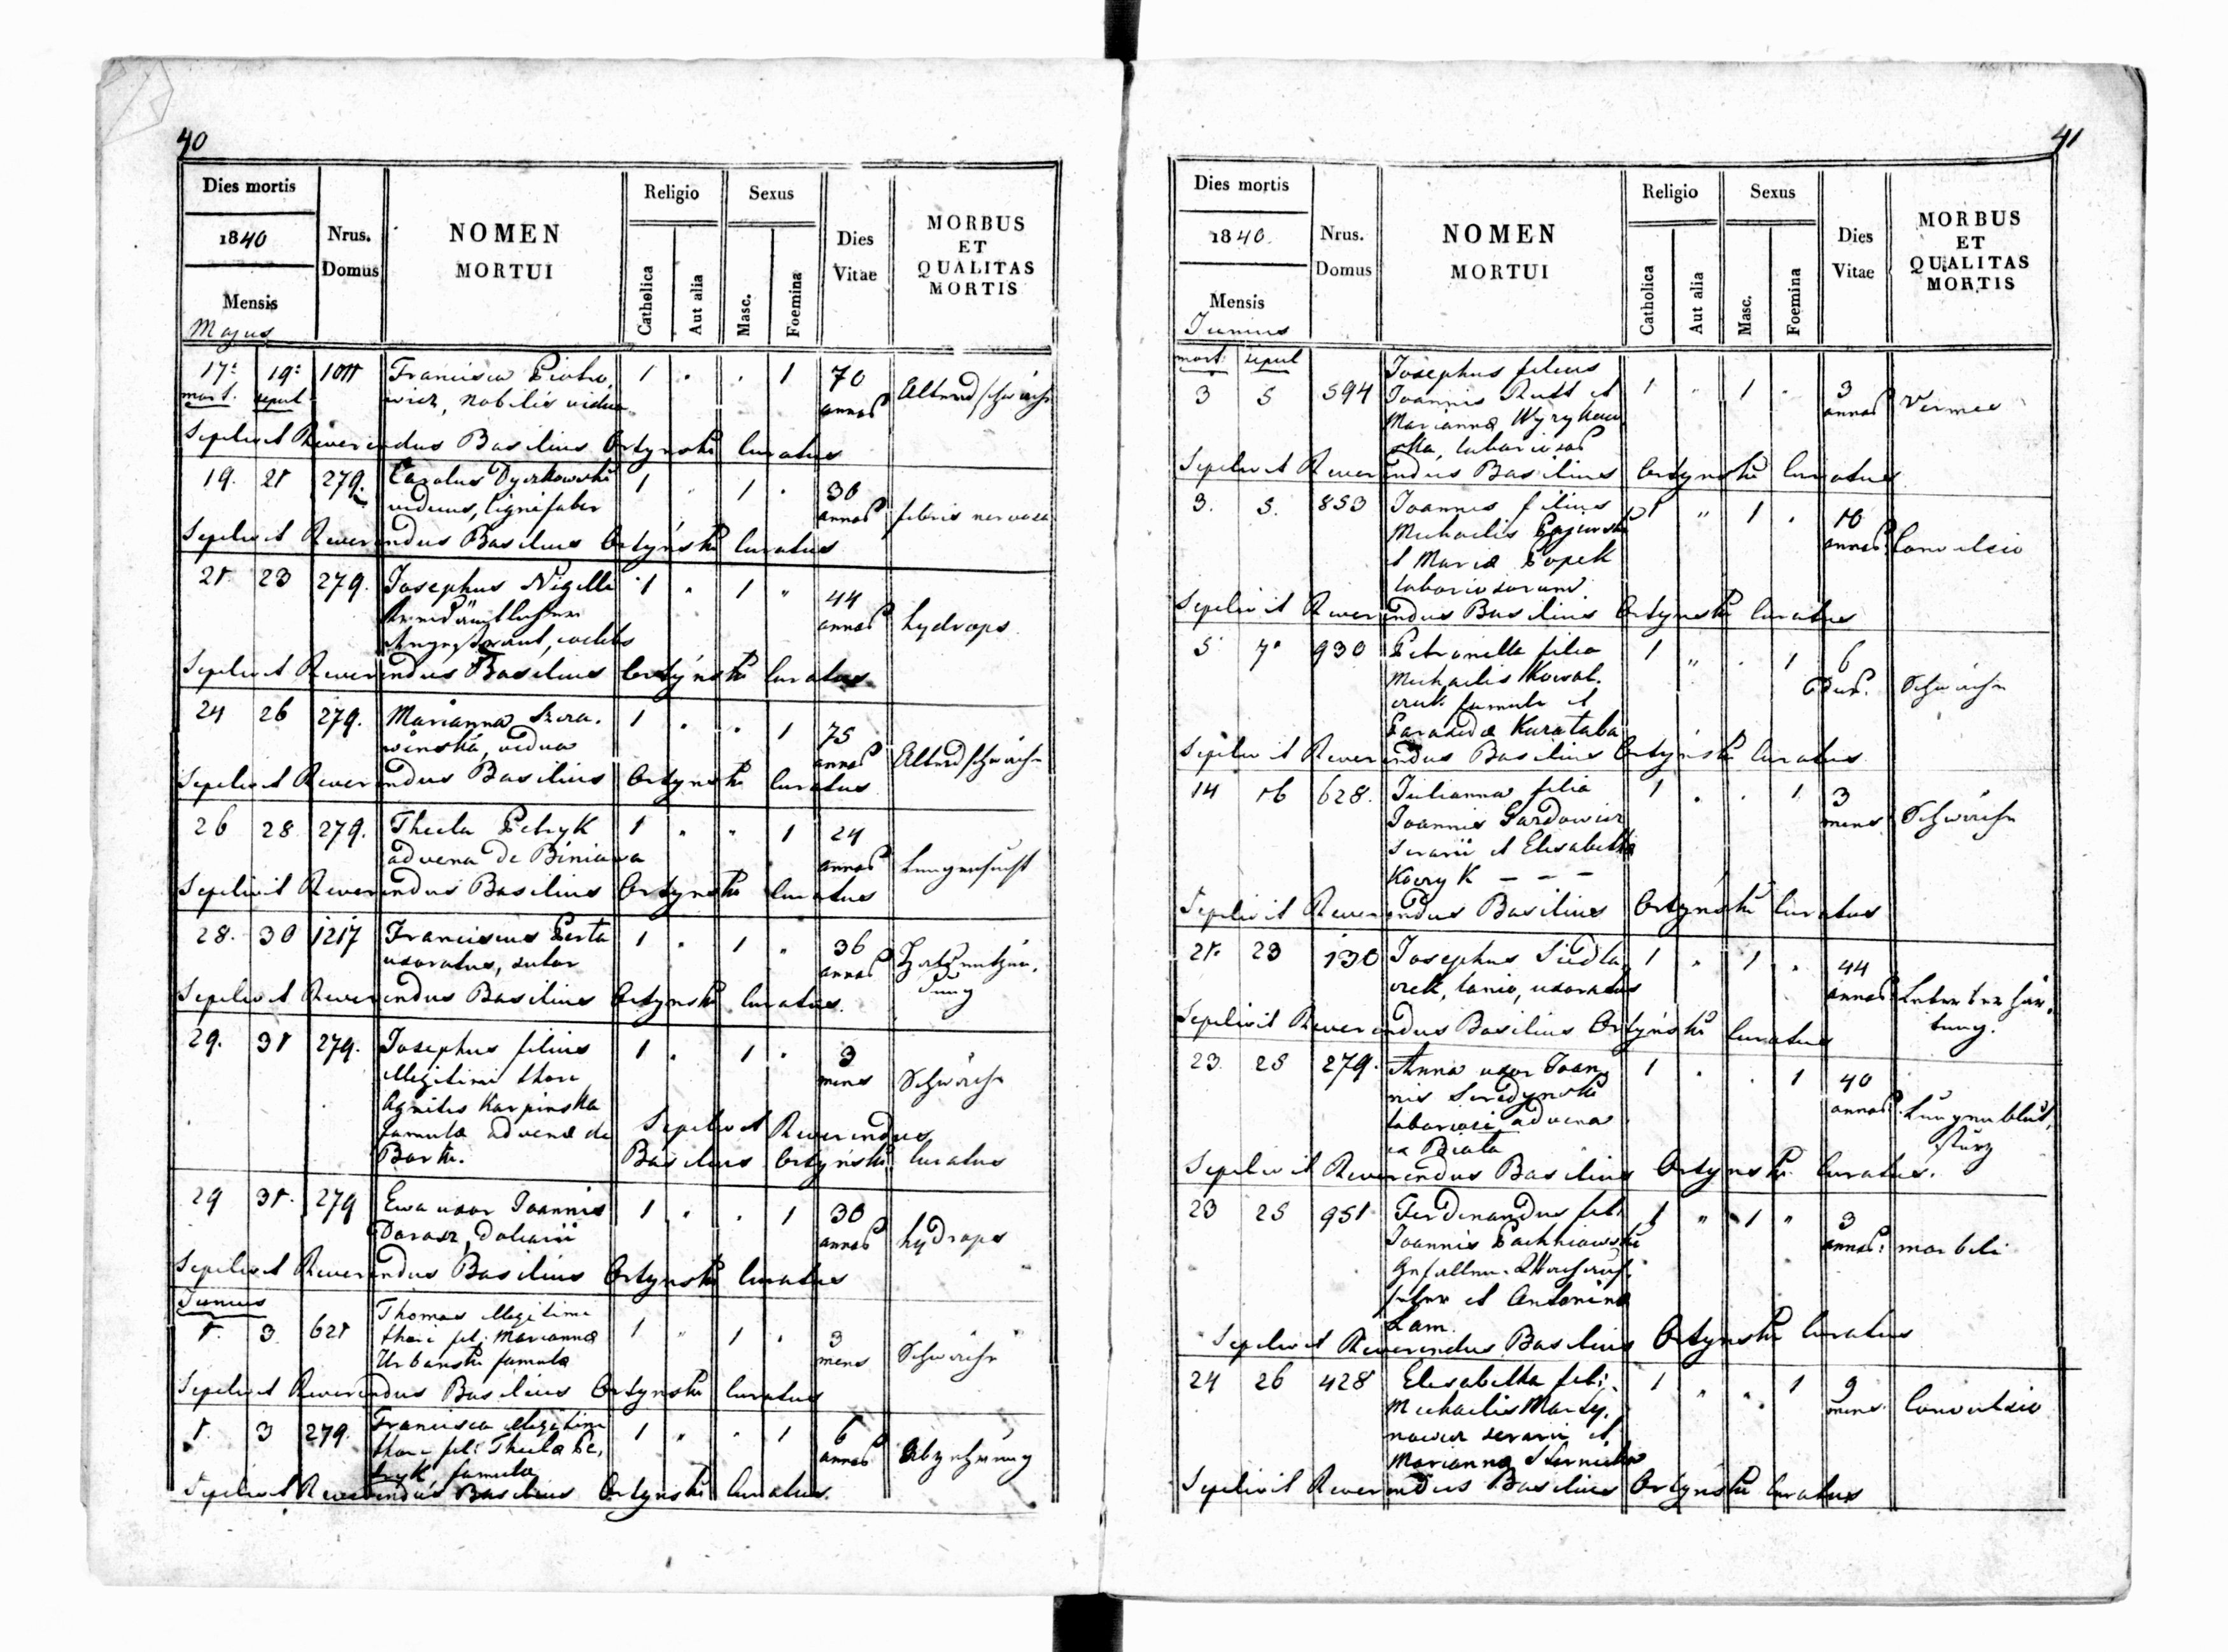 40
Dies mortis
1840
Mensis
Majus
Nrus.
Domus
NOMEN
MORTUI
Religio
Catholica
Aut alia
Sexus
Masc.
Foemina
Dies
Vitae
MORBUS
ET
QUALITAS
MORTIS
17: 19: 1011 Francisca Piotro, 1 . . 1 70
mort. sepul. wicz, nobilis vidua annos Altersschwäche
Sepelivit Reverendus Basilius Ortyński Curatus
19. 21 279. Carolus Dyczkowski 1 1 . 30
viduus, lignifaber annos febris nervosa
Sepelivit Reverendus Basilius Ortyński Curatus
21. 23 279. Josephus Nigelli 1 . 1 " 44
annos hydrops.
caelebs
Sepelivit Reverendus Basilius Ortyński Curatus
24 26 279. Marianna Szra. 1 . . 1 75
wińska, vidua annos Altersschwäche
Sepelivit Reverendus Basilius Ortyński Curatus
26 28 279. Thecla Petryk 1 " " 1 24
advena de Biniawa annos Lungensucht
Sepelivit Reverendus Basilius Ortyński Curatus
28. 30 1217 Franciscus Perta 1 . 1 " 36
uxoratus, sutor annos Halsentzün,
dung
Sepelivit Reverendus Basilius Ortyński Curatus.
29. 31 279. Josephus filius 1 . 1 . 3
illegitimi thori mens Schwäche
Agnetis Karpinska
famula advena de Sepelivit Reverendus
Bartk. Basilius Ortyński Curatus
29 31. 279 Ewa uxor Joannis 1 . . 1 30
Darasz, doliarii annos hydrops
Sepelivit Reverendus Basilius Ortyński Curatus
Junius
1. 3. 621 Thomas illegitimi
thori fil: Marianna 1 " 1 . 3
Urbanski famula mens Schwäche
Sepelivit Reverendus Basilius Ortyński Curatus
1. 3 279. Francisca illegitimi 1 " . 1 6
thori fil: Thecla Pe, annos Abzehrung
tryk, famula
Sepelivit Reverendus Basilius Ortyński Curatus.
41
Dies mortis
1840.
Mensis
Junius
Nrus.
Domus
NOMEN
MORTUI
Religio
Catholica
Aut alia
Sexus
Masc.
Foemina
Dies
Vitae
MORBUS
ET
QUALITAS
MORTIS
mort: sepul Josephus filius
3 5 594 Joannis Rutt et 1 " 1 . 3
Marianna Wyrykow annos Vermes
ska, laboriosos
Sepelivit Reverendus Basilius Ortyński Curatus
3. 5. 853 Joannes filius 1 " 1 . 10
Michaelis annos Convulsio
et Maria Popek
laboriosorum.
Sepelivit Reverendus Basilius Ortyński Curatus
5 7. 930 Petronella filia 1 " . 1 6
Michaelis Kowal. Schwäche
czuk famuli et
Parasida Kurataba
Sepelivit Reverendus Basilius Ortyński Curatus
14 16 628. Julianna filia 1 . . 1. 3
Joannis Gardowicz mens Schwäche
serarii et Elisabetha
Koczyk – – –
Sepelivit Reverendus Basilius Ortyński Curatus
21. 23 130 Josephus Siedla, 1 " 1 . 44
czek, lanio, uxoratus annos Leberverhär,
tung.
Sepelivit Reverendus Basilius Ortyński Curatus
23. 25 279. Anna uxor Joan, 1 . . 1 40
nis Seredynski annos Lungenblut,
laboriosi advena sturz
ex Biała
Sepelivit Reverendus Basilius Ortyński Curatus.
23 25 951 Ferdinandus fil: 1 " 1 " 3
Joannis Pachniowski annos: morbili
Gefällen-Wachauf,
seher et Antonina
Lam.
Sepelivit Reverendus Basilius Ortyński Curatus
24 26 428 Elisabetha fil: 1 " " 1 9
Michaelis Marty, mens. Convulsio
nowicz serarii et
Marianna Sternicka
Sepelivit Reverendus Basilius Ortyński Curatus